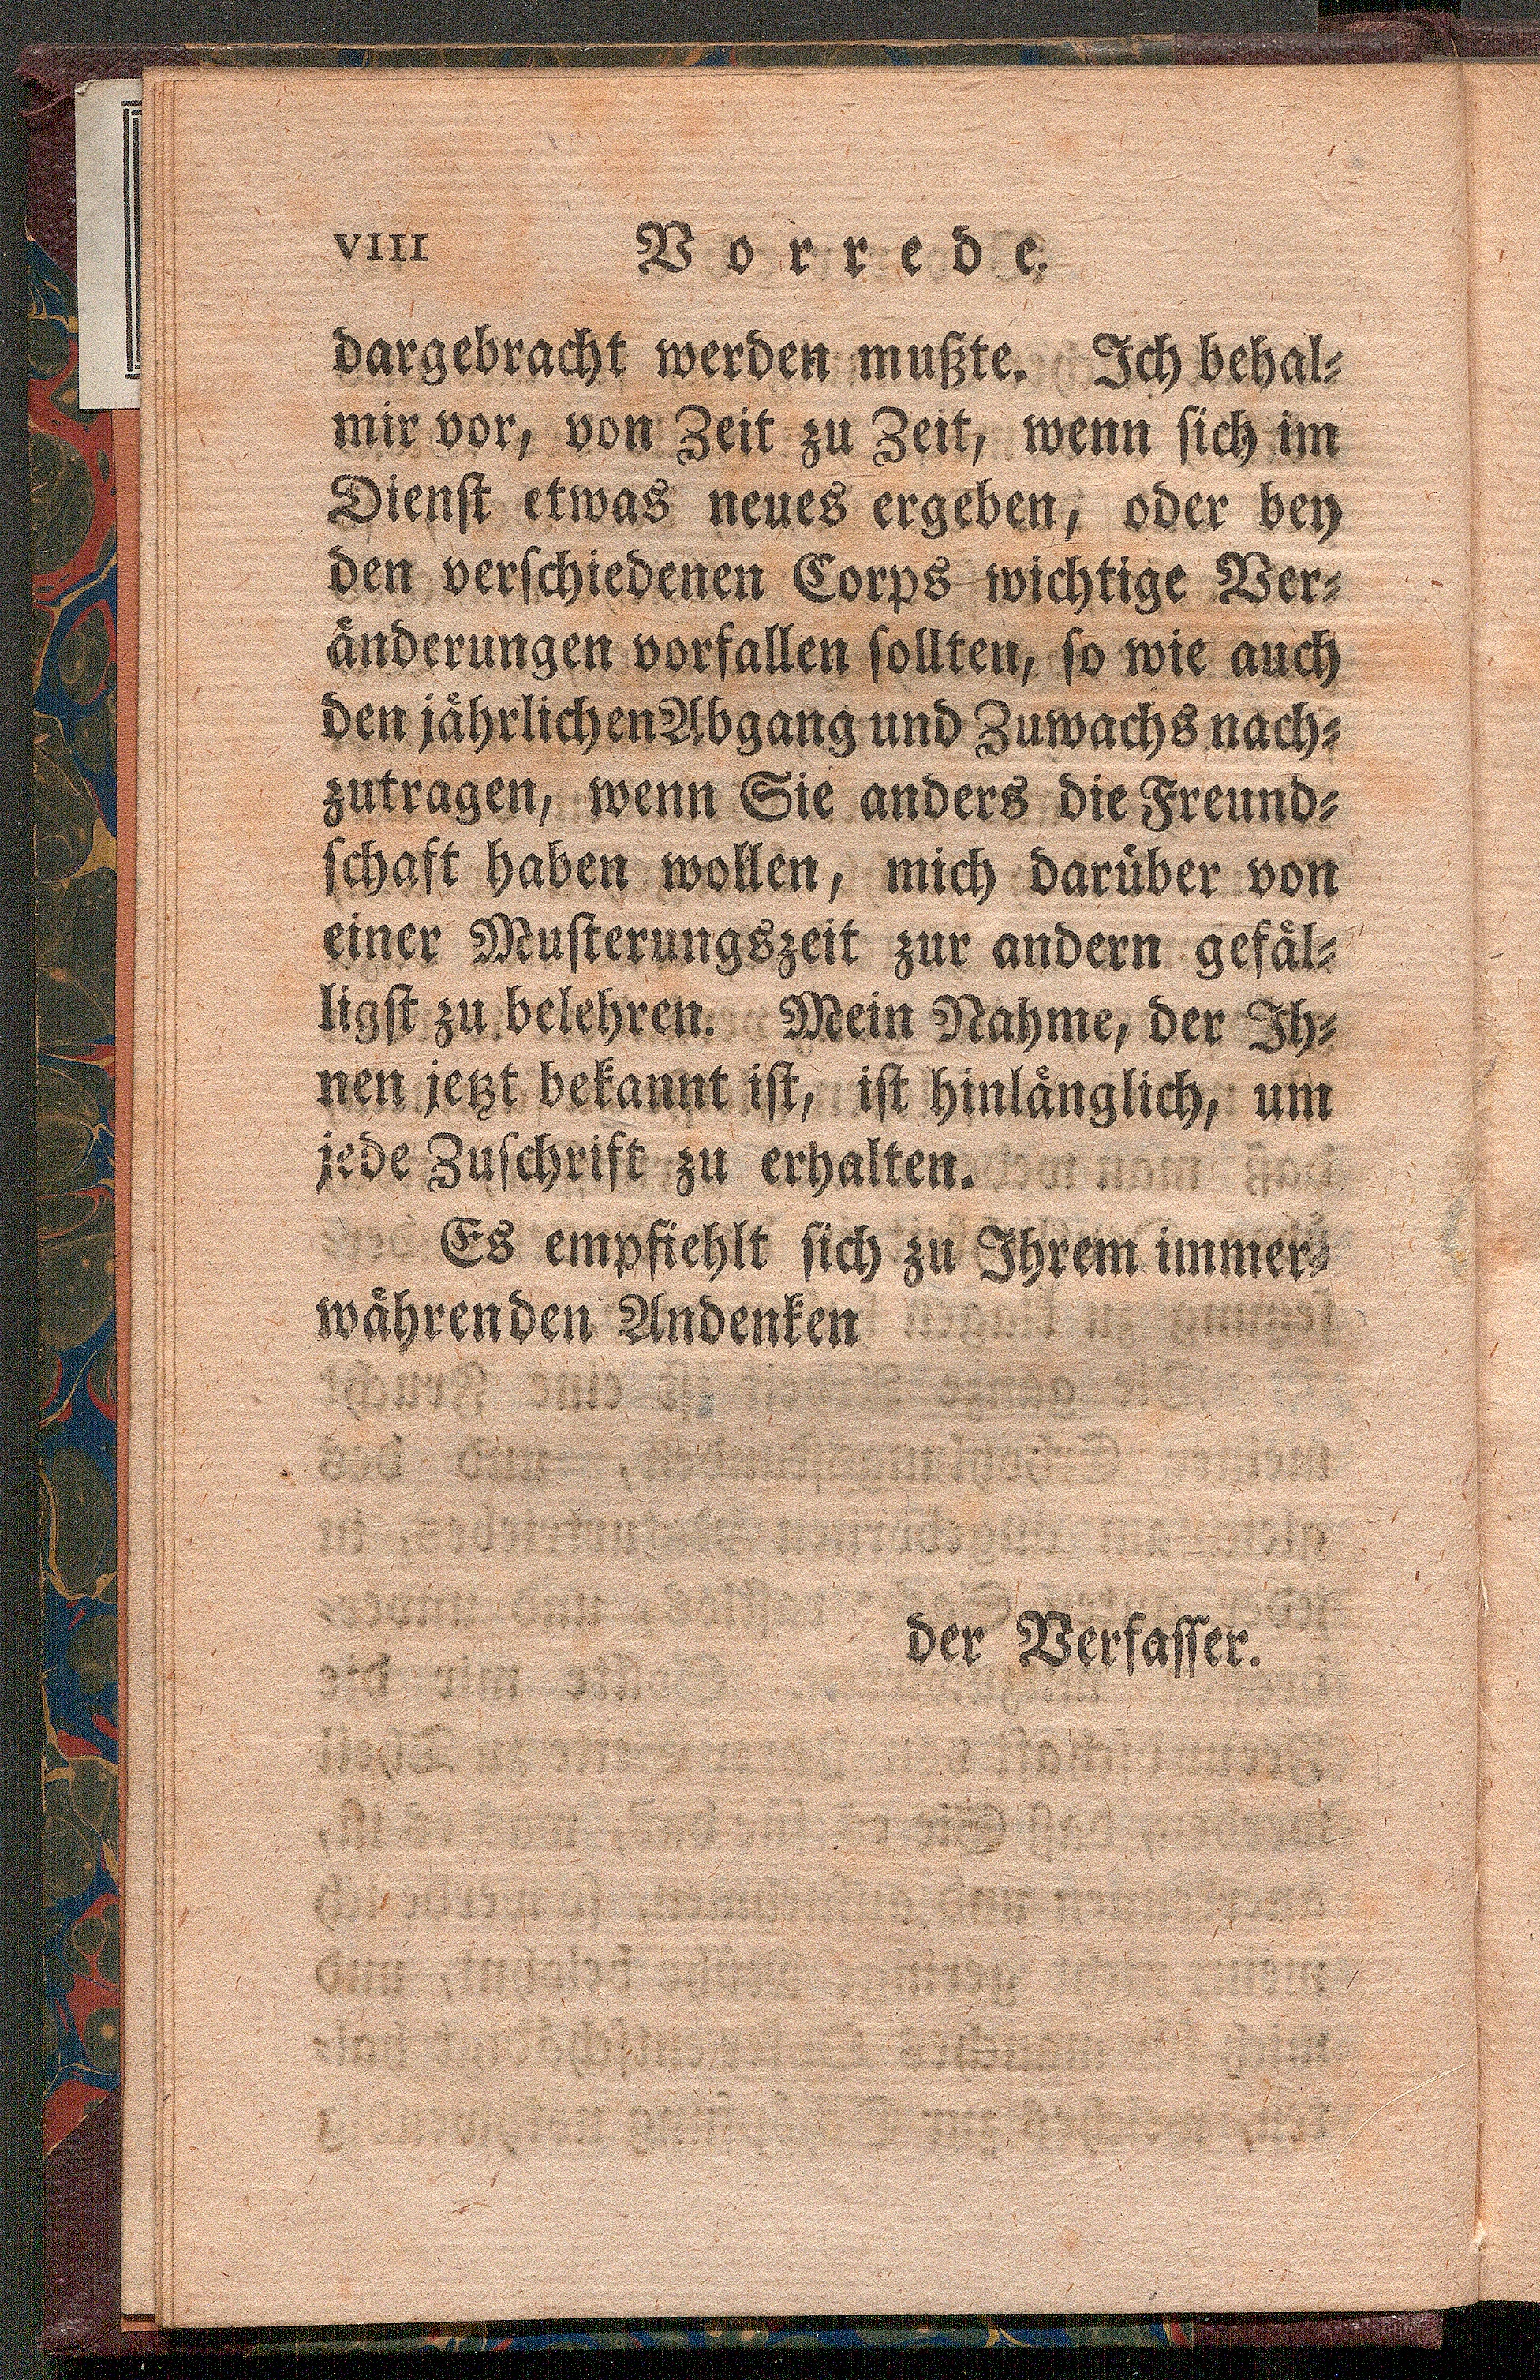 VIII Vorrede.
dargebracht werden mußte. Ich behal⸗
mir vor, von Zeit zu Zeit, wenn ſich im
Dienſt etwas neues ergeben, oder bey
den verſchiedenen Corps wichtige Ver⸗
änderungen vorfallen ſollten, ſo wie auch
den jährlichen Abgang und Zuwachs nach⸗
zutragen, wenn Sie anders die Freund⸗
ſchaft haben wollen, mich darüber von
einer Muſterungszeit zur andern gefäl⸗
ligſt zu belehren. Mein Nahme, der Ih⸗
nen jetzt bekannt iſt, iſt hinlänglich, um
jede Zuſchrift zu erhalten.
Es empfiehlt ſich zu Ihrem immer⸗
währenden Andenken
der Verfaſſer.